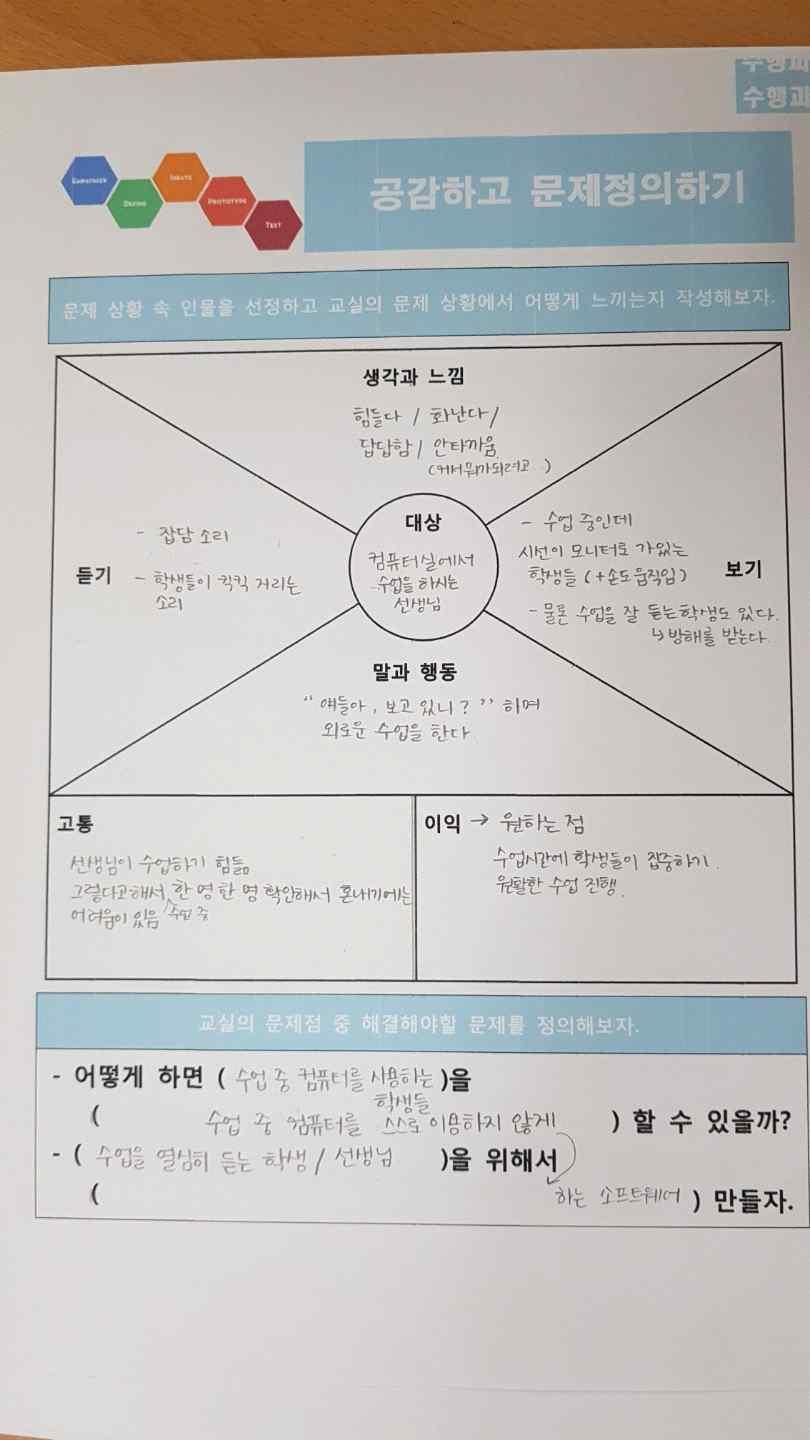 수행과
수행과
EMPATHIZE
DEFINE
IDEATE
PROTOTYPE
TEST
공감하고 문제정의하기
문제 상황 속 인물을 선정하고 교실의 문제 상황에서 어떻게 느끼는지 작성해보자.
생각과 느낌
힘들다 / 화난다 /
답답함 / 안타까움
(커서 뭐가되려고..)
듣기
- 잡담 소리
- 학생들이 키킥 거리는
소리
대상
컴퓨터실에서
수업을 하시는
선생님
보기
- 수업 중인데
시선이 모니터로 가있는
학생들 (+손도움직임)
- 물론 수업을 잘 듣는 학생도 있다.
↳ 방해를 받는다.
말과 행동
“ 얘들아, 보고 있니? ” 하며
외로운 수업을 한다
고통
선생님이 수업하기 힘듦
그렇다고해서 한 명 한 명 확인해서 혼내기에는
어려움이 있음 수업 중
이익 → 원하는 점
수업시간에 학생들이 집중하기.
원활한 수업 진행.
교실의 문제점 중 해결해야할 문제를 정의해보자.
- 어떻게 하면 ( 수업 중 컴퓨터를 사용하는 )을
학생들
( 수업 중 컴퓨터를 스스로 이용하지 않게 ) 할 수 있을까?
- ( 수업을 열심히 듣는 학생 / 선생님 )을 위해서
( 하는 소프트웨어 ) 만들자.